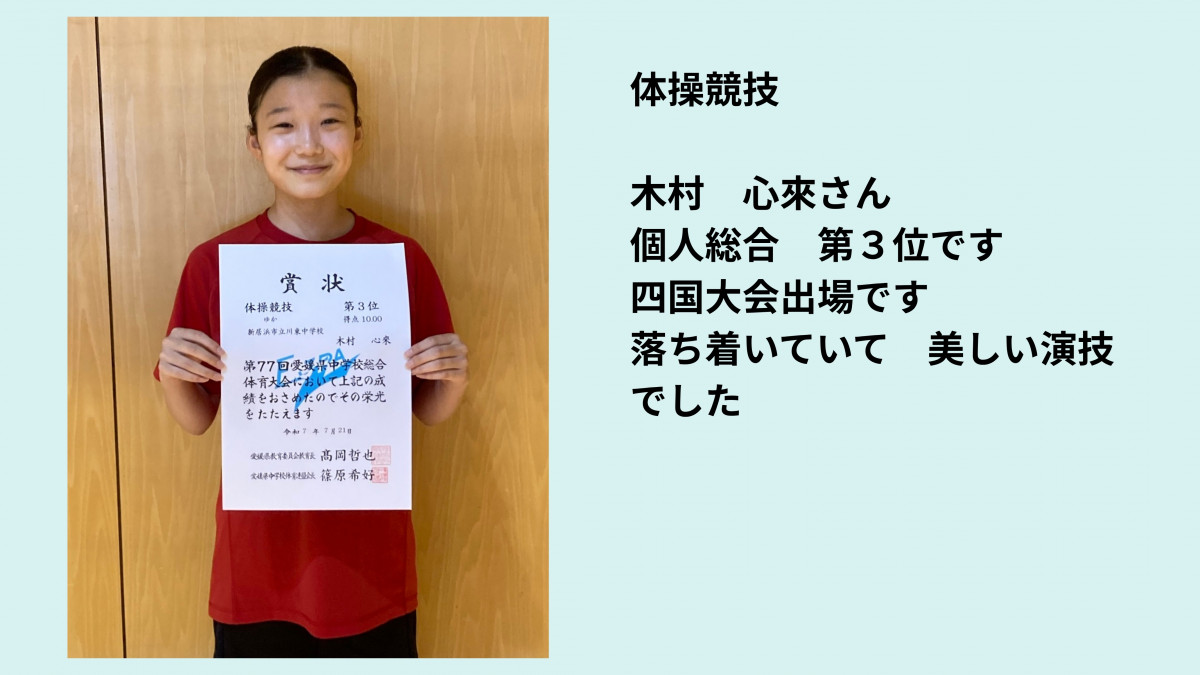 賞 状
体操競技 第３位
ゆか 得点 10.00
新居浜市立川東中学校
木村 心來
第77回愛媛県中学校総合
体育大会において上記の成
績をおさめたのでその栄光
をたたえます
令和 7 年 7 月 21 日
愛媛県教育委員会教育長 髙岡哲也
愛媛県中学校体育連盟会長 篠原希好
体操競技
木村 心來さん
個人総合 第３位です
四国大会出場です
落ち着いていて 美しい演技
でした